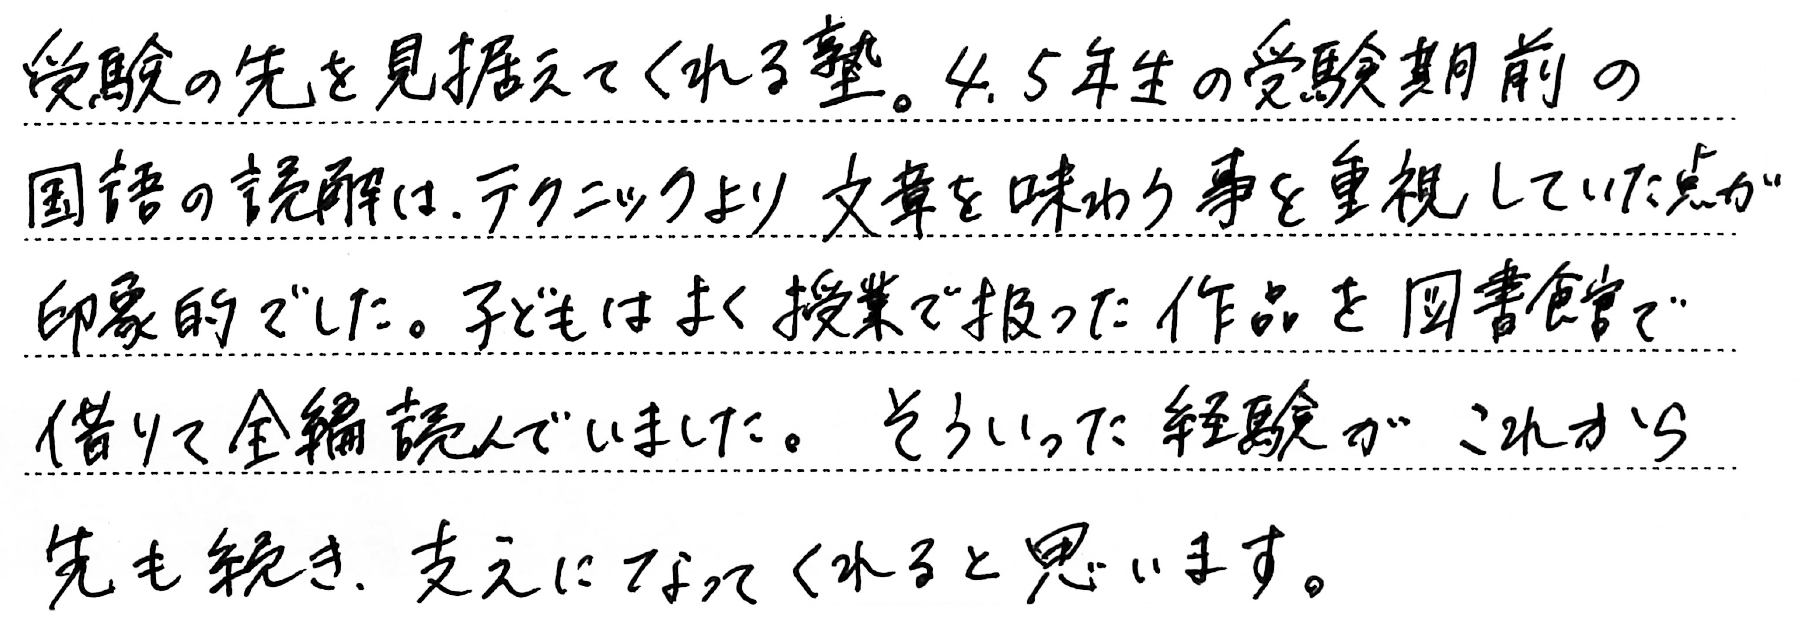 受験の先を見据えてくれる塾。4、5年生の受験期前の
国語の読解は、テクニックより文章を味わう事を重視していた点が
印象的でした。子どもはよく授業で扱った作品を図書館で
借りて全編読んでいました。そういった経験がこれから
先も続き、支えになってくれると思います。